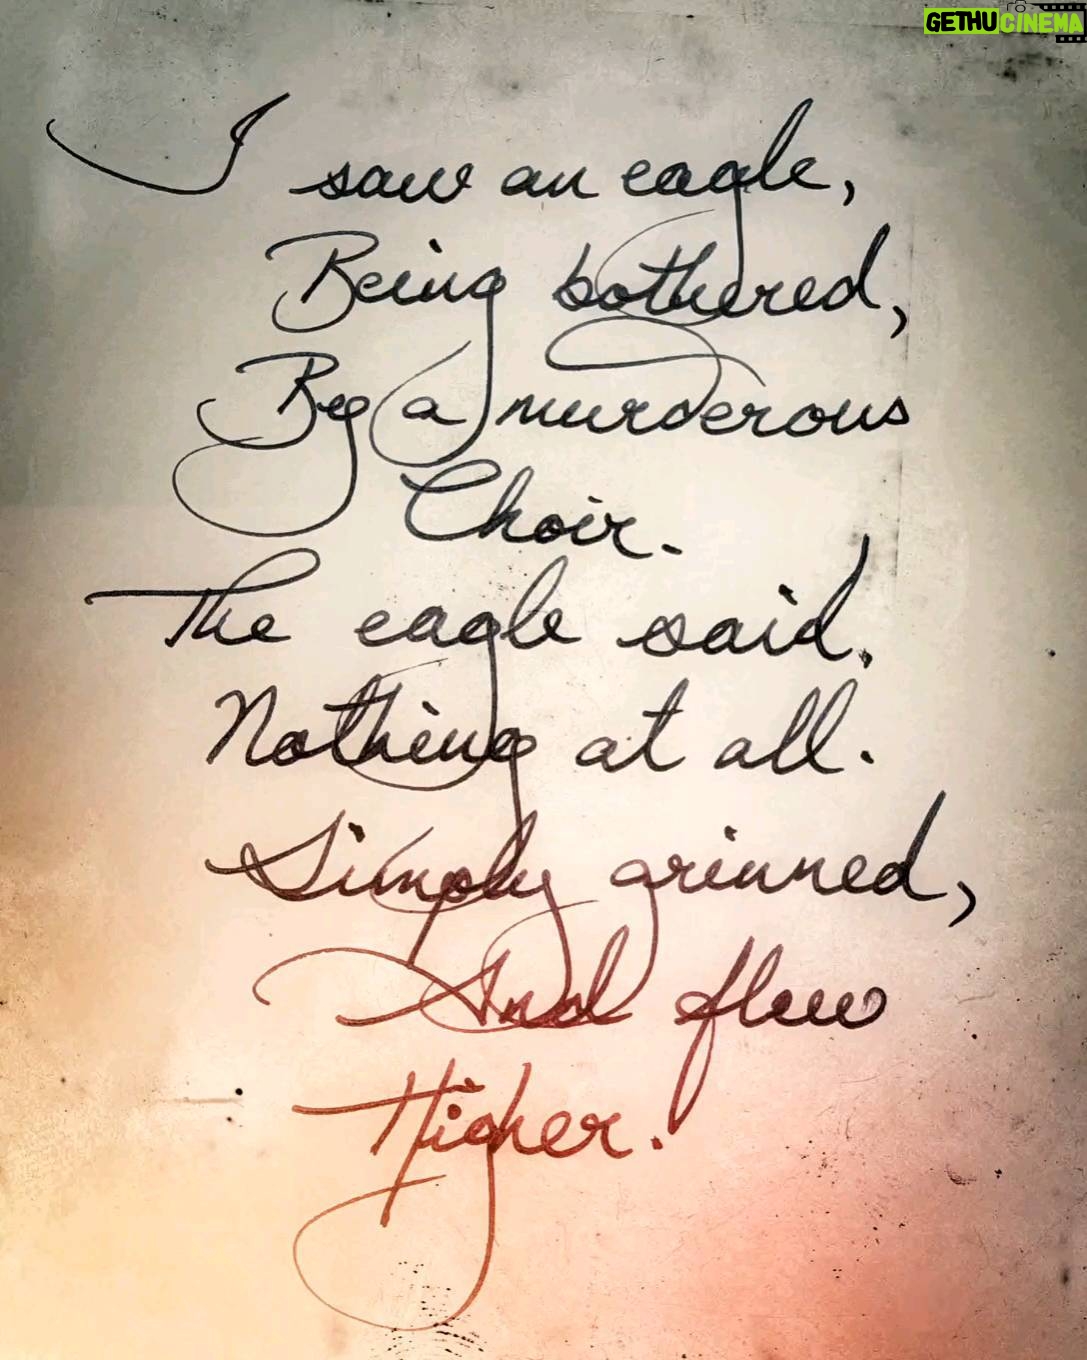 GETHUCINEMA
I saw an eagle,
Being bothered,
By a murderous
Choir.
The eagle said,
Nothing at all.
Simply grinned,
And flew
Higher.